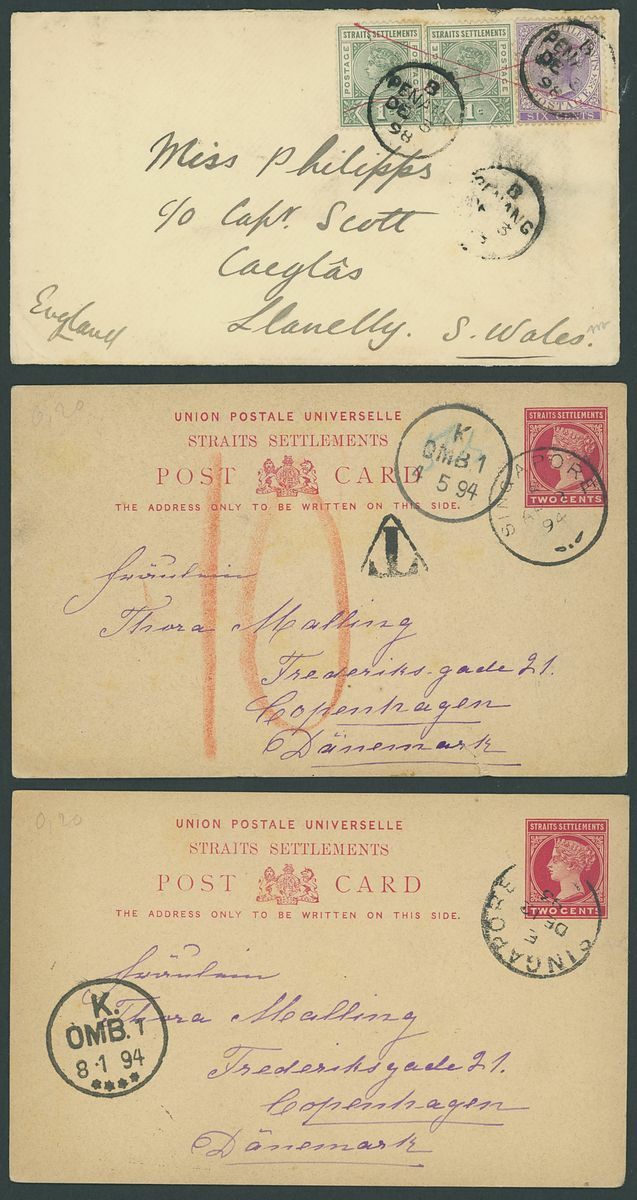 STRAITS SETTLEMENTS
STRAITS SETTLEMENTS
POSTAGE
POSTAGE
1
1
SIX CENTS
B
PENA
DE
98
B
PEN
DE
98
B
PENANG
Miss Philipps
c/o Capt. Scott
Caeglâs
Llanelly. S. Wales.
England
0,20
UNION POSTALE UNIVERSELLE
STRAITS SETTLEMENTS
POST CARD
THE ADDRESS ONLY TO BE WRITTEN ON THIS SIDE.
STRAITS SETTLEMENTS
TWO CENTS
K
OMB 1
4 5 94
SINGAPORE
94
T
10
Fräulein
Thora Malling
Frederiks-gade 21.
Copenhagen
Dänemark
0,20
UNION POSTALE UNIVERSELLE
STRAITS SETTLEMENTS
POST CARD
THE ADDRESS ONLY TO BE WRITTEN ON THIS SIDE.
STRAITS SETTLEMENTS
TWO CENTS
SINGAPORE
DE
K.
OMB. 1
8 · 1 94
****
Fräulein
Thora Malling
Frederiksgade 21.
Copenhagen
Dänemark